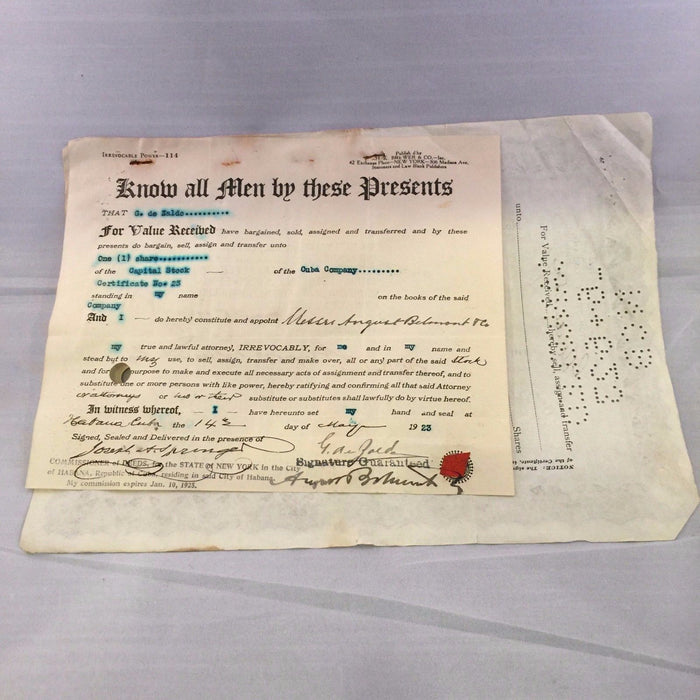 IRREVOCABLE POWER—114
Publish'd by
BREWER & CO.—Inc.
42 Exchange Place—NEW YORK—306 Madison Ave.
Stationers and Law Blank Publishers
Know all Men by these Presents
THAT G. de Zaldo..........
For Value Received have bargained, sold, assigned and transferred and by these
presents do bargain, sell, assign and transfer unto
One (1) share...........
of the Capital Stock — of the Cuba Company.........
Certificate No. 23
standing in my name on the books of the said
Company
And I — do hereby constitute and appoint Messrs August Belmont & Co
my true and lawful attorney, IRREVOCABLY, for me and in my name and
stead but to my use, to sell, assign, transfer and make over, all or any part of the said stock
and for purpose to make and execute all necessary acts of assignment and transfer thereof, and to
substitute one or more persons with like power, hereby ratifying and confirming all that said Attorney
or attorneys or his or their substitute or substitutes shall lawfully do by virtue hereof.
In witness whereof, — I — have hereunto set my hand and seal at
Habana Cuba the 14th day of May 1923
Signed, Sealed and Delivered in the presence of
Joseph A Springer
G. de Zaldo
Signature Guaranteed
August Belmont
COMMISSIONER of DEEDS, for the STATE of NEW YORK in the CITY
of HABANA, Republic of Cuba, residing in said City of Habana.
My commission expires Jan. 10, 1925.
unto
For Value Received, hereby sell, assign and transfer
Shares
NOTICE: The sig
of the Certificate,